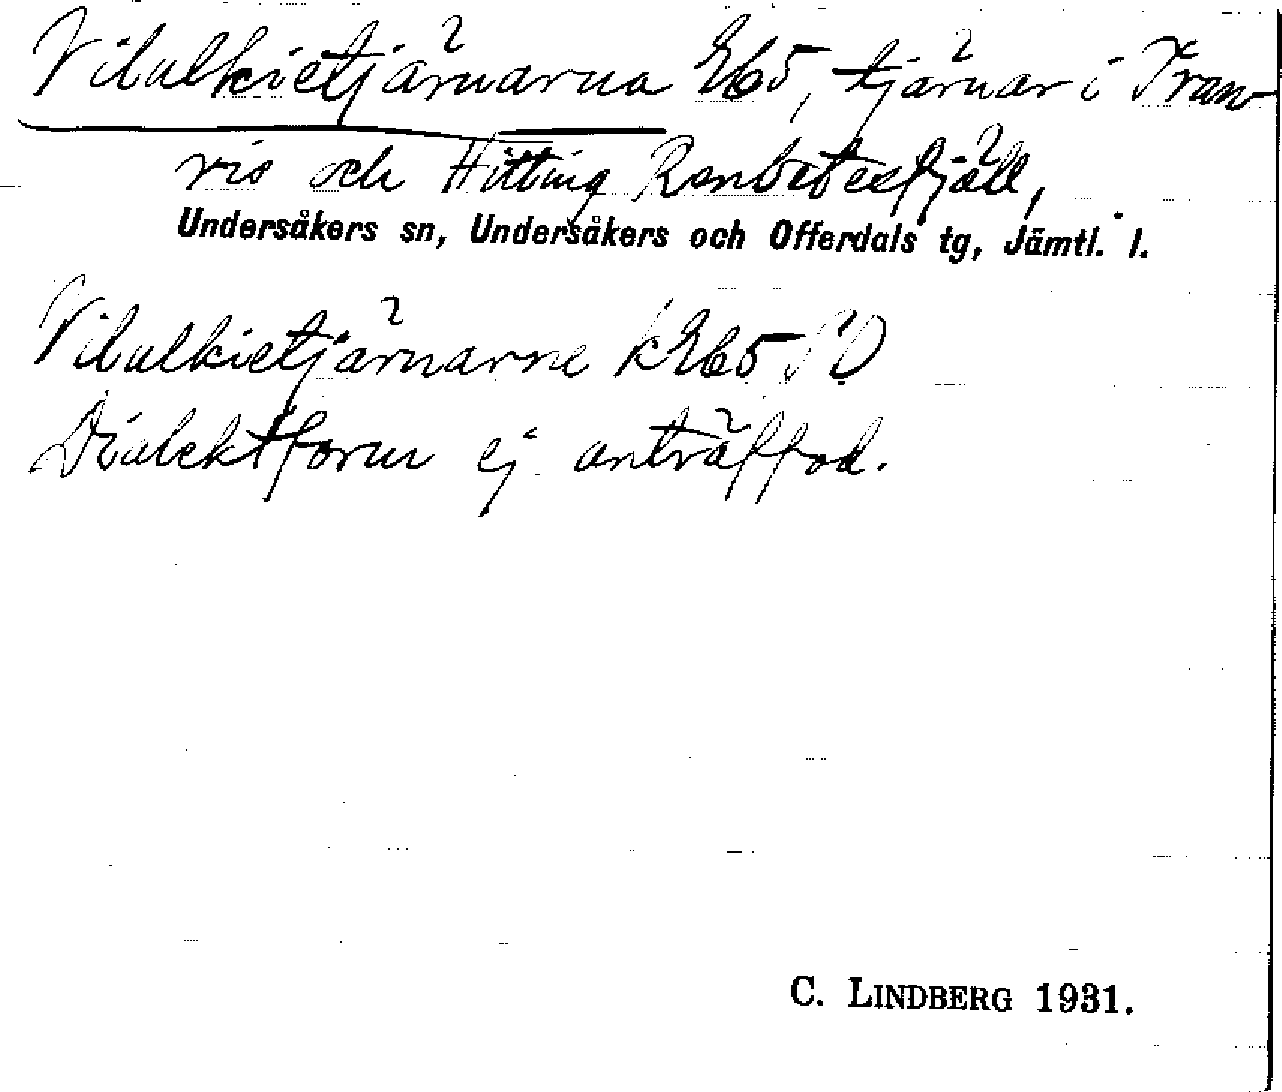 Vilulkietjärnarna Eb5, tjärnar i Tran-
vis och Hitting Renbetesfjäll,
Undersåkers sn, Undersåkers och Offerdals tg, Jämtl. l.
Vilulkietjärnarne k Eb5
Dialektform ej anträffad.
C. LINDBERG 1931.